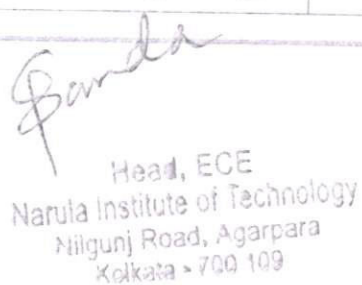 Head, ECE
Narula Institute of Technology
Nilgunj Road, Agarpara
Kolkata - 700 109